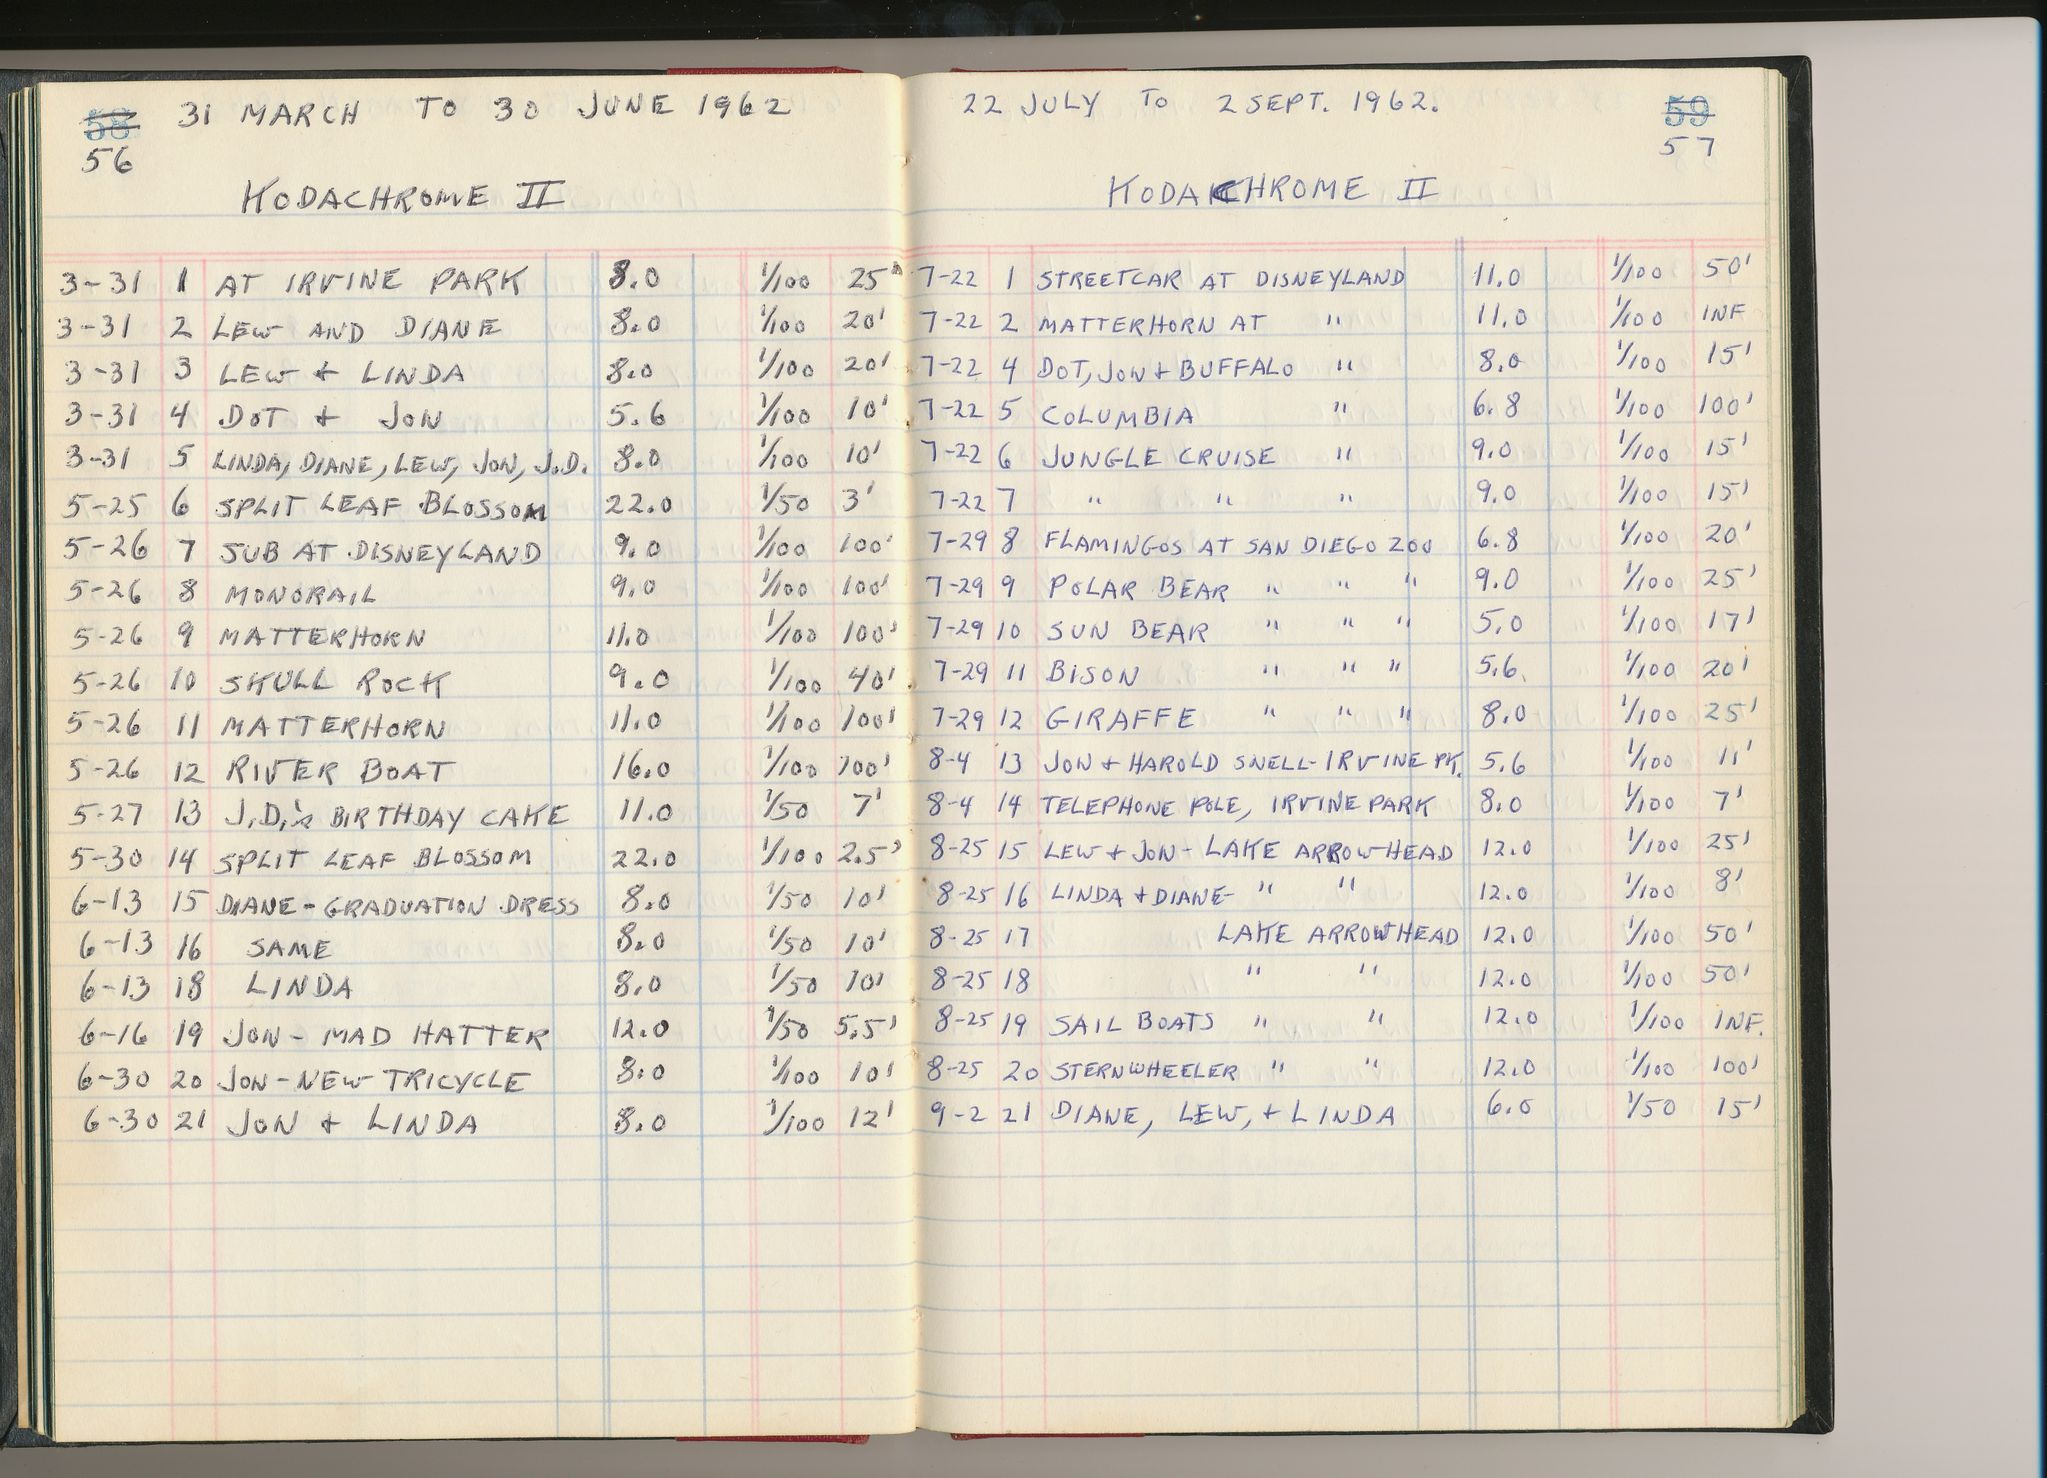 58 31 MARCH TO 30 JUNE 1962
56
KODACHROME II
3-31 1 AT IRVINE PARK 8.0 1/100 25'
3-31 2 LEW AND DIANE 8.0 1/100 20'
3-31 3 LEW + LINDA 8.0 1/100 20'
3-31 4 DOT + JON 5.6 1/100 10'
3-31 5 LINDA, DIANE, LEW, JON, J.D. 8.0 1/100 10'
5-25 6 SPLIT LEAF BLOSSOM 22.0 1/50 3'
5-26 7 SUB AT DISNEYLAND 9.0 1/100 100'
5-26 8 MONORAIL 9.0 1/100 100'
5-26 9 MATTERHORN 11.0 1/100 100'
5-26 10 SKULL ROCK 9.0 1/100 40'
5-26 11 MATTERHORN 11.0 1/100 100'
5-26 12 RIVER BOAT 16.0 1/100 100'
5-27 13 J.D.'s BIRTHDAY CAKE 11.0 1/50 7'
5-30 14 SPLIT LEAF BLOSSOM 22.0 1/100 2.5'
6-13 15 DIANE - GRADUATION DRESS 8.0 1/50 10'
6-13 16 SAME 8.0 1/50 10'
6-13 18 LINDA 8.0 1/50 10'
6-16 19 JON - MAD HATTER 12.0 1/50 5.5'
6-30 20 JON - NEW TRICYCLE 8.0 1/100 10'
6-30 21 JON + LINDA 8.0 1/100 12'
22 JULY TO 2 SEPT. 1962. 59
57
KODACHROME II
7-22 1 STREETCAR AT DISNEYLAND 11.0 1/100 50'
7-22 2 MATTERHORN AT " 11.0 1/100 INF
7-22 4 DOT, JON + BUFFALO " 8.0 1/100 15'
7-22 5 COLUMBIA " 6.8 1/100 100'
7-22 6 JUNGLE CRUISE " 9.0 1/100 15'
7-22 7 " " " 9.0 1/100 15'
7-29 8 FLAMINGOS AT SAN DIEGO ZOO 6.8 1/100 20'
7-29 9 POLAR BEAR " " " 9.0 1/100 25'
7-29 10 SUN BEAR " " " 5.0 1/100 17'
7-29 11 BISON " " " 5.6 1/100 20'
7-29 12 GIRAFFE " " " 8.0 1/100 25'
8-4 13 JON + HAROLD SNELL - IRVINE PK. 5.6 1/100 11'
8-4 14 TELEPHONE POLE, IRVINE PARK 8.0 1/100 7'
8-25 15 LEW + JON - LAKE ARROWHEAD 12.0 1/100 25'
8-25 16 LINDA + DIANE - " " 12.0 1/100 8'
8-25 17 LAKE ARROWHEAD 12.0 1/100 50'
8-25 18 " " 12.0 1/100 50'
8-25 19 SAIL BOATS " " 12.0 1/100 INF.
8-25 20 STERNWHEELER " " 12.0 1/100 100'
9-2 21 DIANE, LEW, + LINDA 6.0 1/50 15'